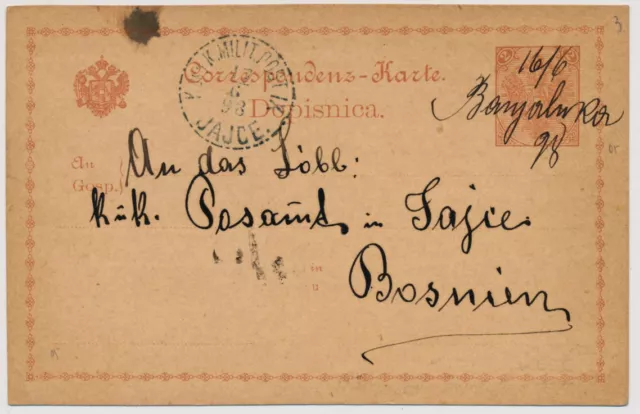 3
K.u.K. MILIT. POST IX
17
6
98
JAJCE.
Correspondenz-Karte.
Dopisnica.
16/6
Banjaluka
98
An
Gosp.
An das Löbl:
k.u.k. Posaämt in Jajce
in
u
Bosnien